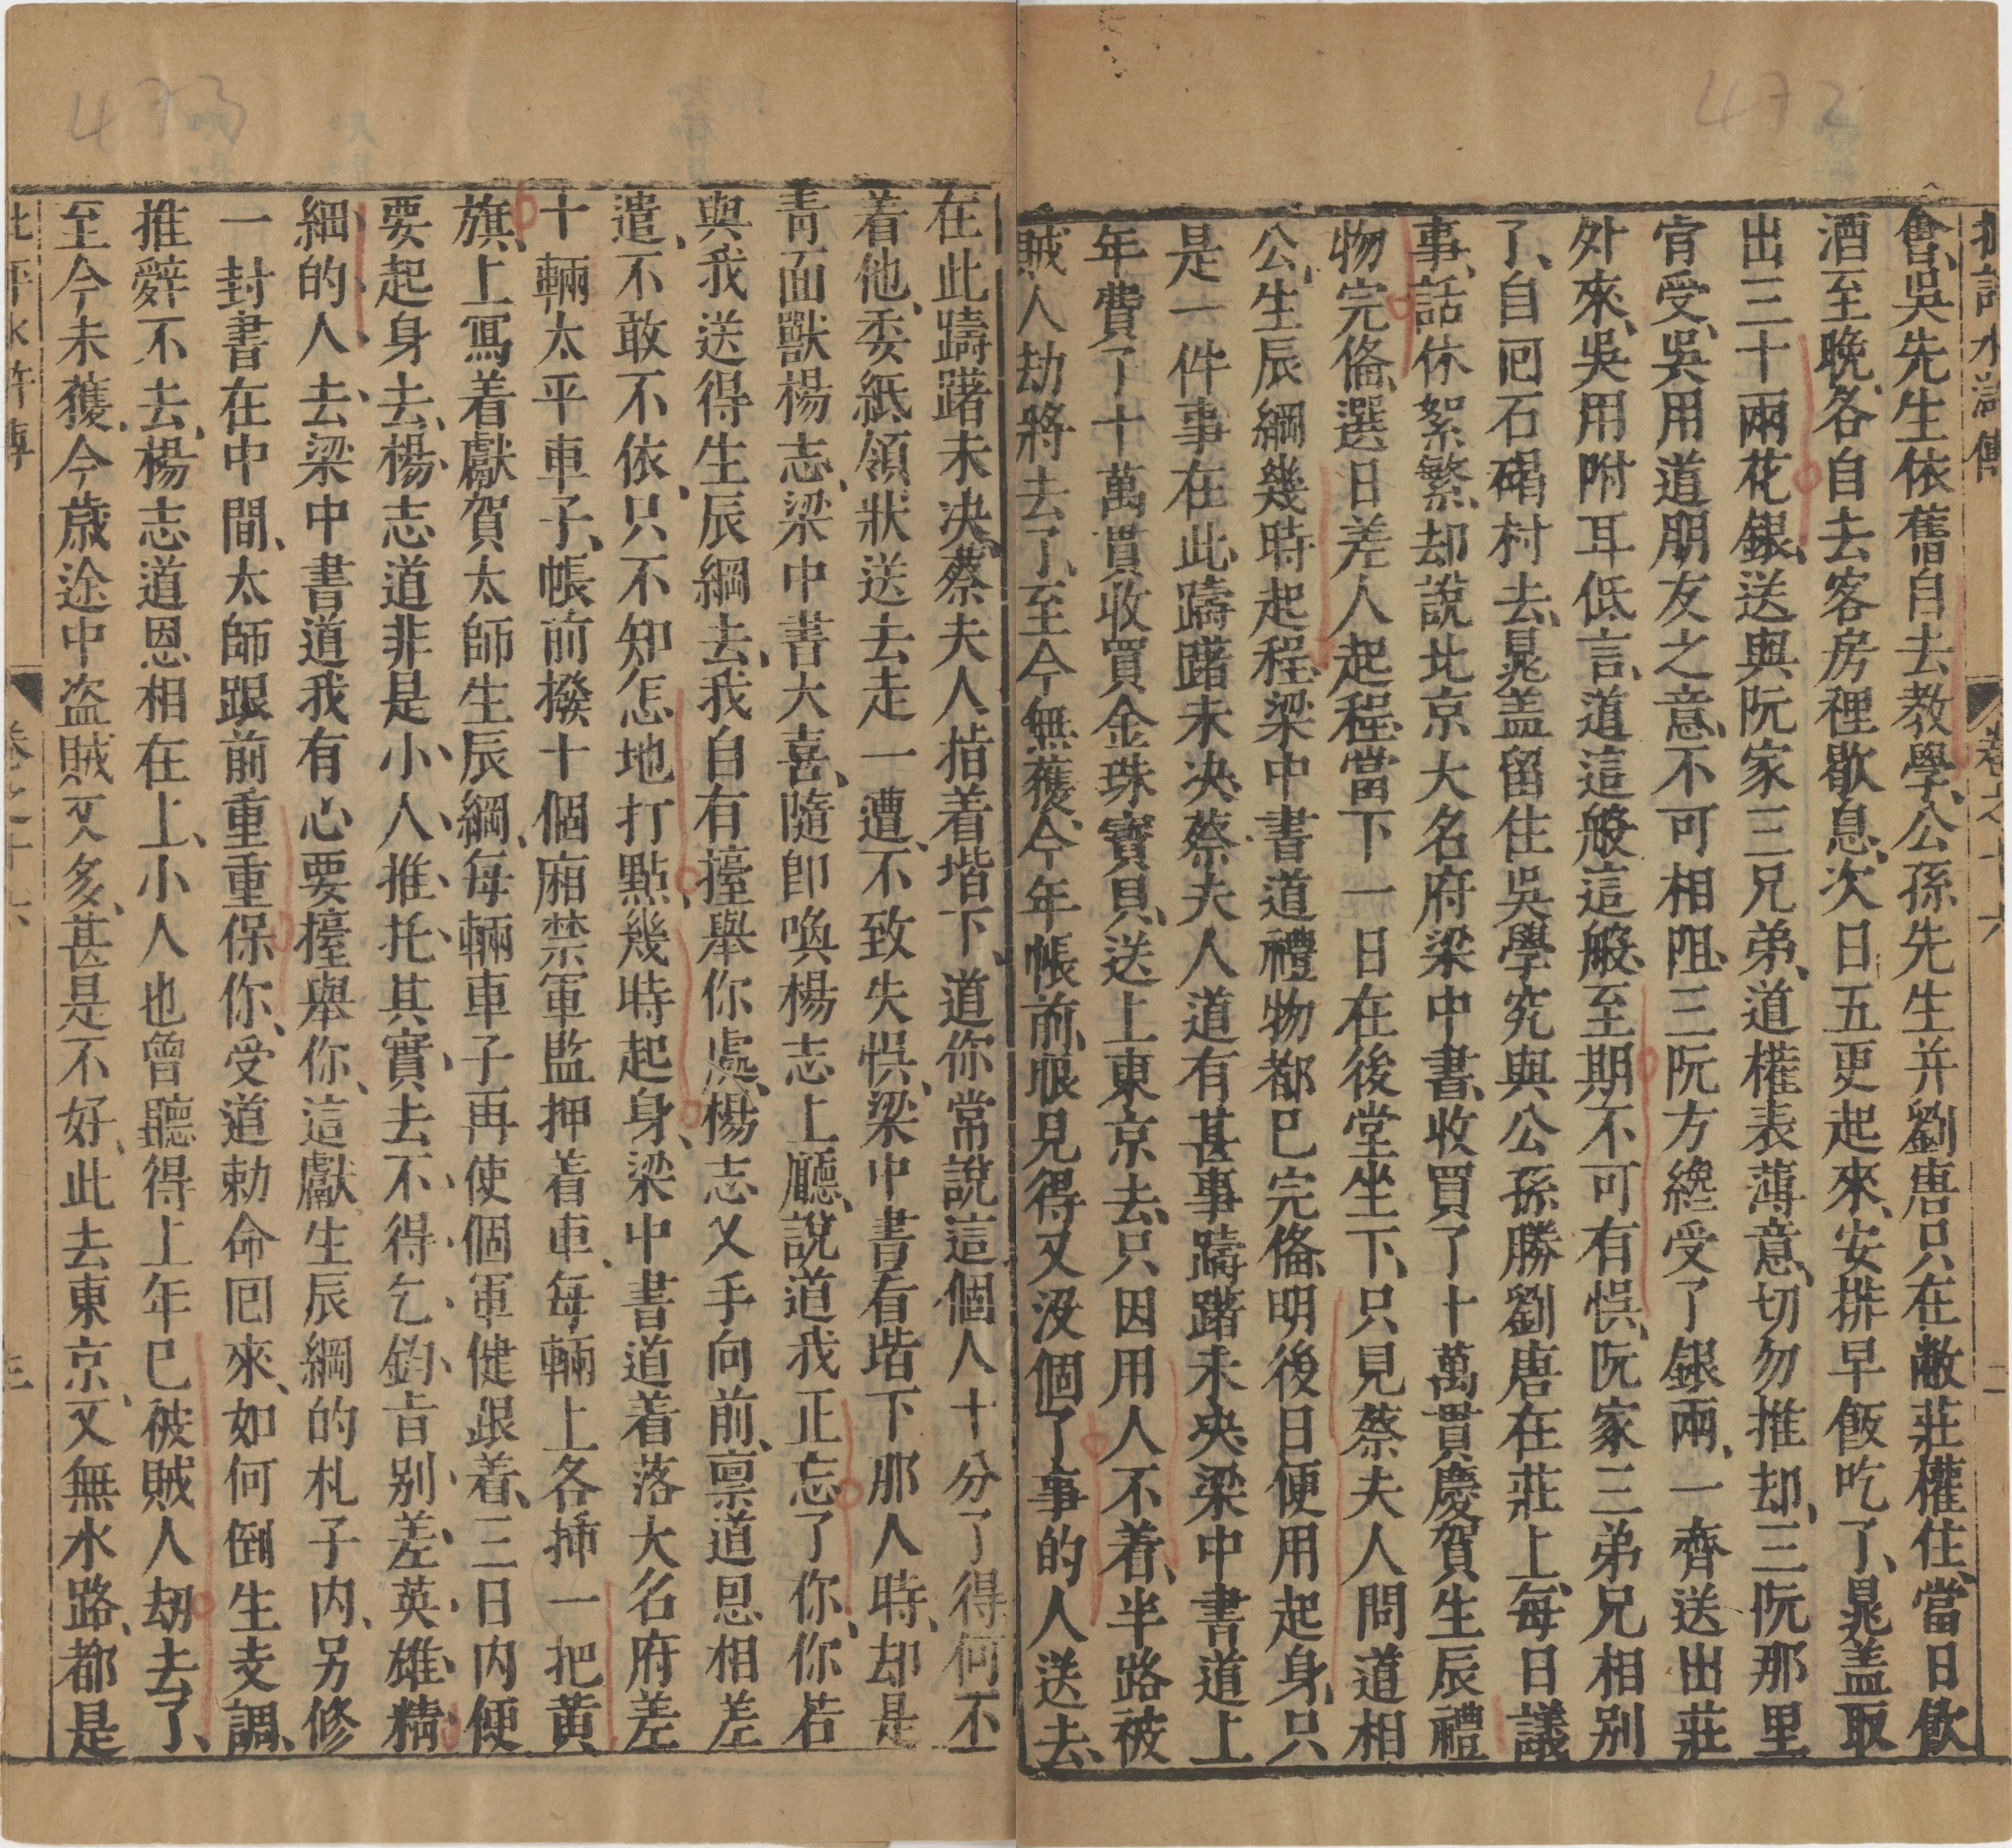 472
會、吳先生依舊自去教學、公孫先生并劉唐只在敝莊權住、當日飲
酒至晚、各自去客房裡歇息、次日五更起來、安排早飯吃了、晁盖取
出三十兩花銀、送與阮家三兄弟、道權表薄意、切勿推却、三阮那里
肯受、吳用道朋友之意、不可相阻、三阮方纔受了銀兩、一齊送出莊
外來、吳用附耳低言、道這般這般、至期不可有悞、阮家三弟兄相别
了、自囘石碣村去、晁盖留住吳學究與公孫勝劉唐在莊上、每日議
事、話休絮繁、却說北京大名府梁中書、收買了十萬貫慶賀生辰禮
物完俻、選日差人起程、當下一日在後堂坐下、只見蔡夫人問道相
公、生辰綱幾時起程、梁中書道禮物都已完俻、明後日便用起身、只
是一件事在此躊躇未决、蔡夫人道有甚事躊躇未央、梁中書道上
年費了十萬貫收買金珠寳貝、送上東京去、只因用人不着、半路被
賊人劫將去了、至今無獲、今年帳前、眼見得又没個了事的人送去、
433
在此躊躇未决、蔡夫人指着堦下、道你常說這個人十分了得、何不
着他、委紙領狀送去走一遭、不致失悞、梁中書看堦下那人時、却是
靑面獸楊志、梁中書大喜、隨卽喚楊志上廳、說道我正忘了你、你若
與我送得生辰綱去、我自有擡舉你處、楊志叉手向前、禀道恩相差
遣、不敢不依、只不知怎地打點、幾時起身、梁中書道着落大名府差
十輛太平車子、帳前撥十個廂禁軍監押着車、每輛上各揷一把黄
旗、上寫着獻賀太師生辰綱、每輛車子再使個軍健跟着、三日内便
要起身去、楊志道非是小人推托、其實去不得、乞鈞㫖别差英雄精
細的人去、梁中書道我有心要擡舉你、這獻生辰綱的札子内、另修
一封書在中間、太師跟前重重保你、受道勅命囘來、如何倒生支調、
推辤不去、楊志道恩相在上、小人也曾聽得上年已被賊人劫去了、
至今未獲、今歲途中盗賊又多、甚是不好、此去東京、又無水路、都是